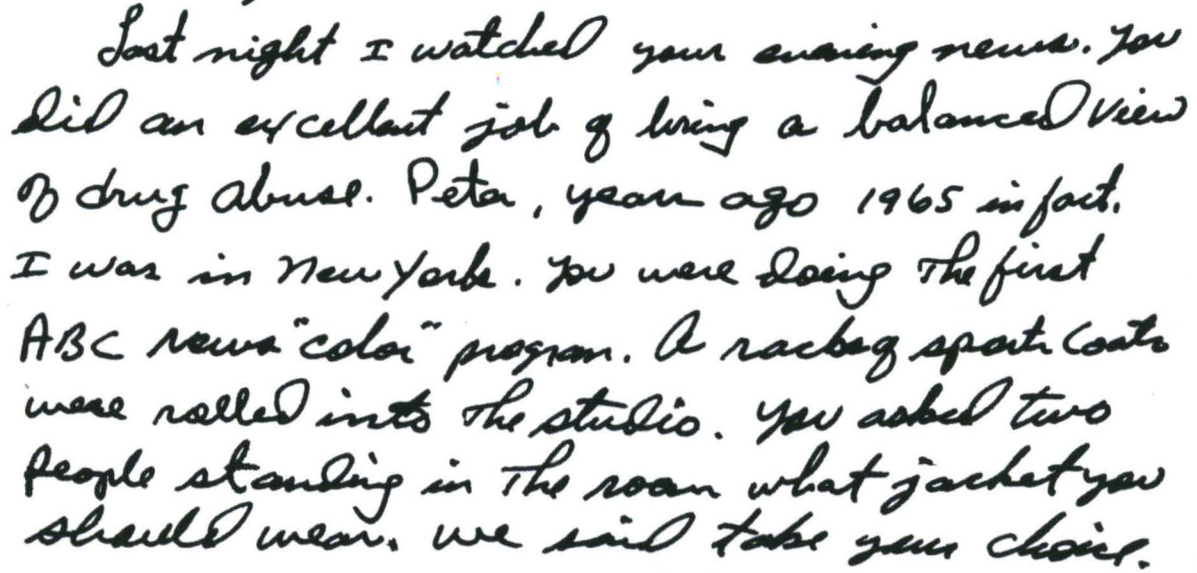 Last night I watched your evening news. You
did an excellent job of living a balanced view
of drug abuse. Peter, years ago 1965 in fact.
I was in New York. You were doing the first
ABC news "color" program. A rack of sports coats
were rolled into the studio. You asked two
people standing in the room what jacket you
should wear. we said take your choice.